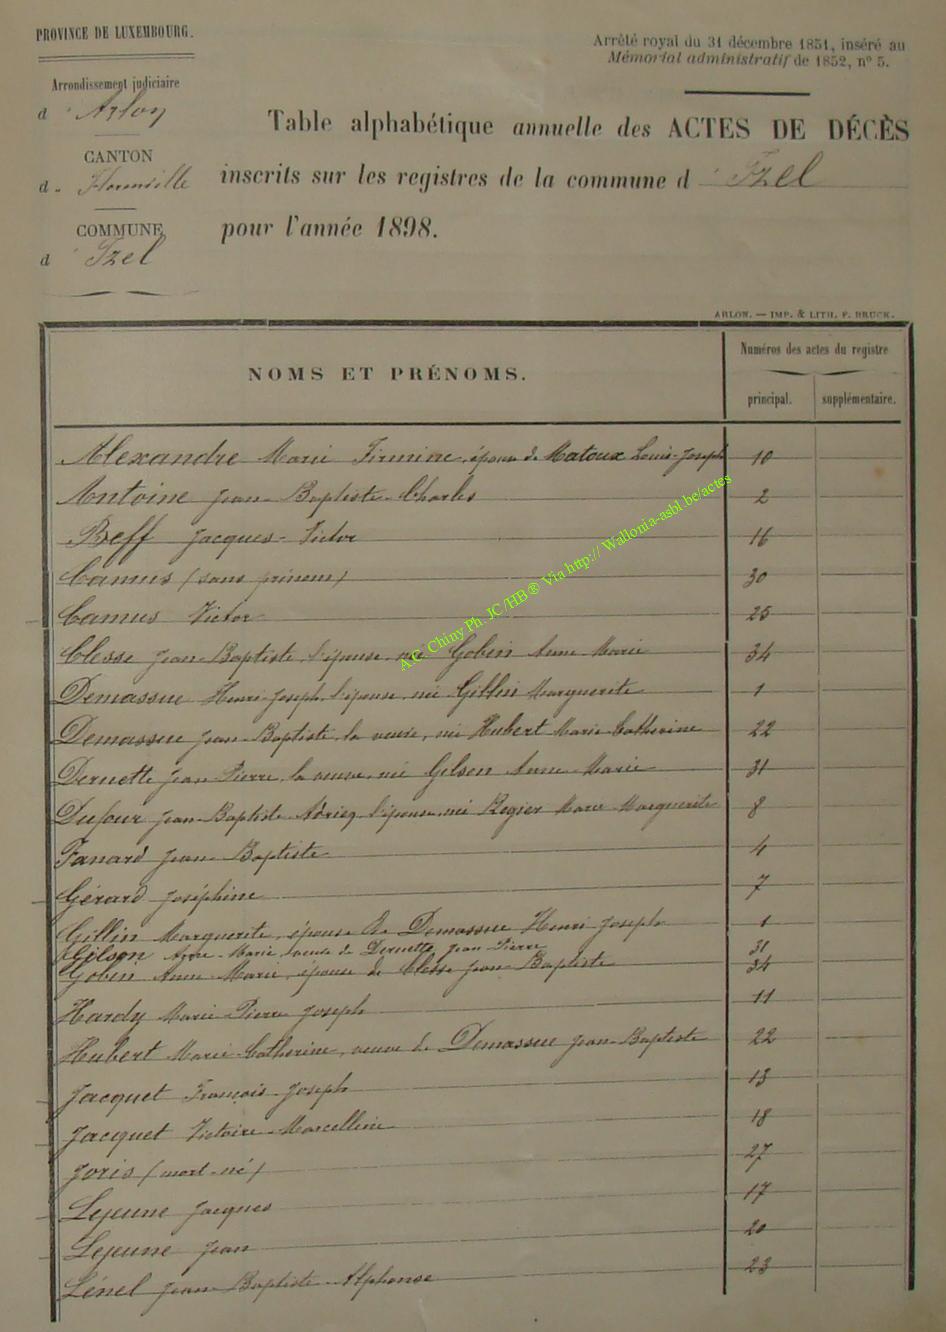 PROVINCE DE LUXEMBOURG.
Arrêté royal du 31 décembre 1851, inséré au
Mémorial administratif de 1852, n° 5.
Arrondissement judiciaire
d'Arlon
CANTON
d. Florenville
COMMUNE
d'Izel
Table alphabétique annuelle des ACTES DE DÉCÈS
inscrits sur les registres de la commune d'Izel
pour l'année 1898.
ARLON. — IMP. & LITH. F. BRUCK.
NOMS ET PRÉNOMS.
Numéros des actes du registre
principal. supplémentaire.
Alexandre Marie Firmine, épouse de Matoux Louis-Joseph 10
Antoine Jean-Baptiste-Charles 2
Beff Jacques-Victor 16
Camus (sans prénom) 30
Camus Victor 25
Clesse Jean-Baptiste, l'épouse, née Gobin Anne-Marie 34
Demassue Henri-Joseph, l'épouse, née Gillin Marguerite 1
Demassue Jean-Baptiste, la veuve, née Hubert Marie-Catherine 22
Deruette Jean-Pierre, la veuve, née Gilson Anne-Marie 31
Dufour Jean-Baptiste l'épouse, née Marie-Marguerite 8
Fanard Jean-Baptiste 4
Gérard Joséphine 7
Gillin Marguerite, épouse de Demassue Henri-Joseph 1
Gilson Anne-Marie, veuve de Deruette Jean-Pierre 31
Gobin Anne-Marie, épouse de Clesse Jean-Baptiste 34
Hardy Marie-Pierre-Joseph 11
Hubert Marie-Catherine, veuve de Demassue Jean-Baptiste 22
Jacquet François-Joseph 13
Jacquet Victoire-Marcelline 18
Joris (mort-né) 27
Lejeune Jacques 17
Lejeune Jean 20
Lénel Jean-Baptiste-Alphonse 23
A.C. Chiny Ph. JC/HB® Via http:// Wallonia-asbl.be/actes